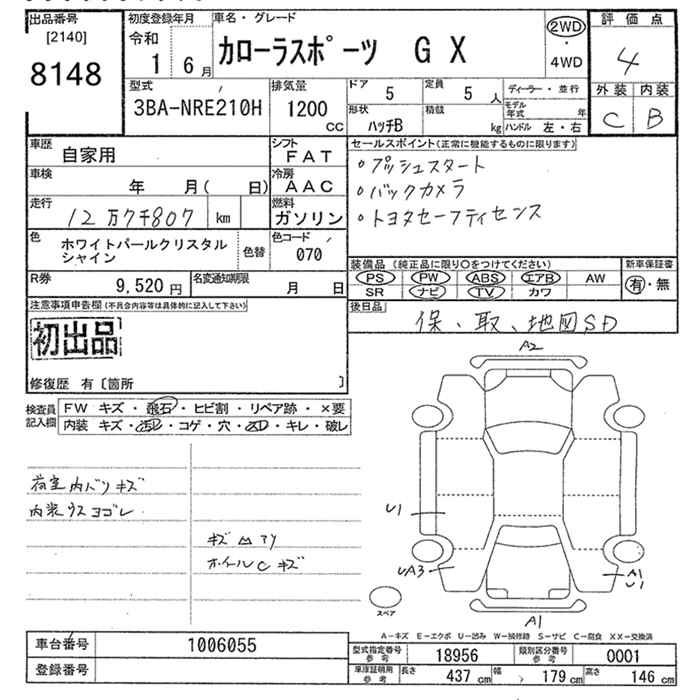 出品番号
[2140]
8148
初度登録年月
令和
1 6月
車名・グレード
カローラスポーツ GX
2WD
・
4WD
評価点
4
外装 内装
C B
型式
3BA-NRE210H
排気量
1200
cc
ドア 5
定員 5人
形状 ハッチB
積載 kg
ディーラー・並行
モデル年式 年
ハンドル 左・右
車歴 自家用
シフト FAT
車検 年 月( 日)
冷房 AAC
走行 12万7千807 km
燃料 ガソリン
色 ホワイトパールクリスタルシャイン
色替
色コード 070
R券 9,520円
名変通知期限 月 日
セールスポイント(正常に機能するものに限ります)
○プッシュスタート
○バックカメラ
○トヨタセーフティセンス
装備品 (純正品に限り○をつけてください)
PS PW ABS エアB AW
SR ナビ TV カワ
新車保証書
有・無
後日品
保、取、地図SD
注意事項申告欄(不具合内容等は具体的に記入して下さい)
初出品
修復歴 有〔箇所 〕
検査員記入欄
FW キズ・飛石・ヒビ割・リペア跡・×要
内装 キズ・汚レ・コゲ・穴・スレ・キレ・破レ
荷室内バリキズ
内装ウスヨゴレ
キズ凹アリ
ホイールCキズ
A2
U1
UA3
A1
U1
スペア
A1
A-キズ E-エクボ U-凹み W-補修跡 S-サビ C-腐食 XX-交換済
車台番号 1006055
登録番号
型式指定番号 参考 18956
類別区分番号 参考 0001
車庫証明用 参考 長さ 437cm 幅 179cm 高さ 146cm